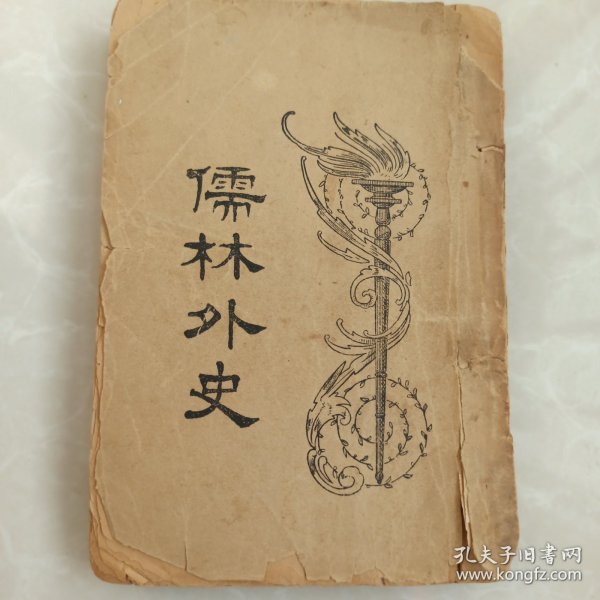 儒林外史
孔夫子旧书网
www.kongfz.com